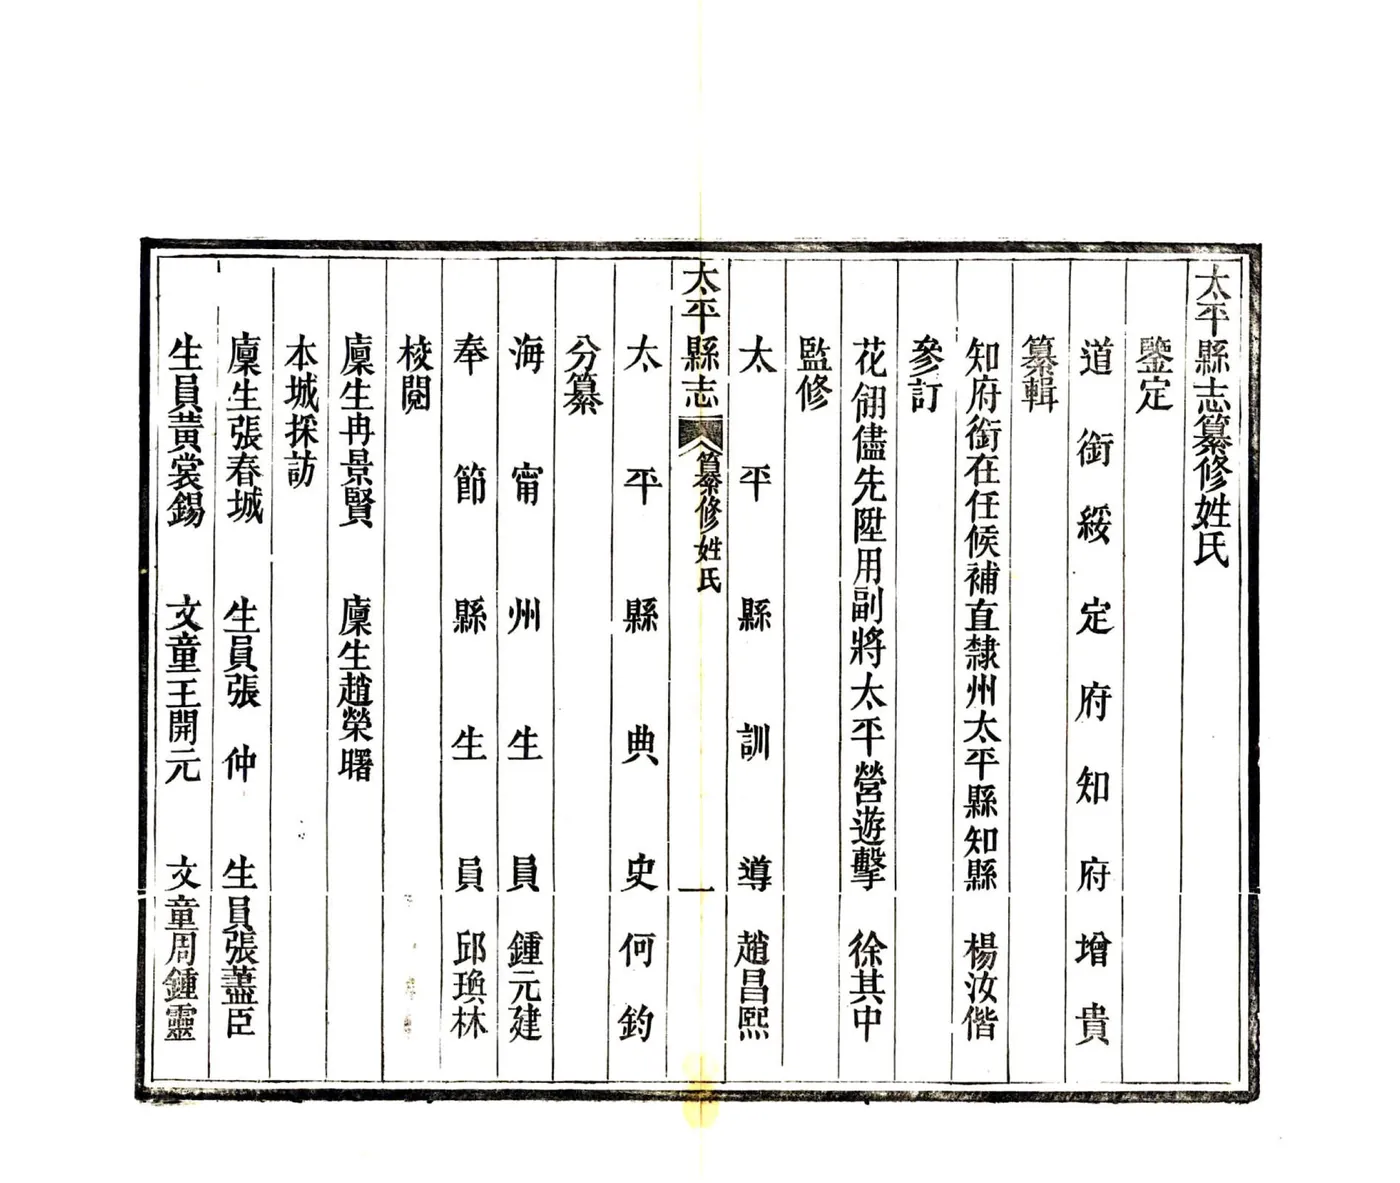 太平縣志纂修姓氏
鑒定
道銜綏定府知府增貴
纂輯
知府銜在任候補直隸州太平縣知縣 楊汝偕
參訂
花翎儘先陞用副將太平營遊擊 徐其中
監修
太平縣訓導 趙昌熙
太平縣志 纂修姓氏 一
太平縣典史何鈞
分纂
海甯州生員 鍾元建
奉節縣生員 邱瑍林
校閱
廩生冉景賢 廩生趙榮曙
本城採訪
廩生張春城 生員張 仲 生員張藎臣
生員黃裳錫 文童王開元 文童周鍾靈